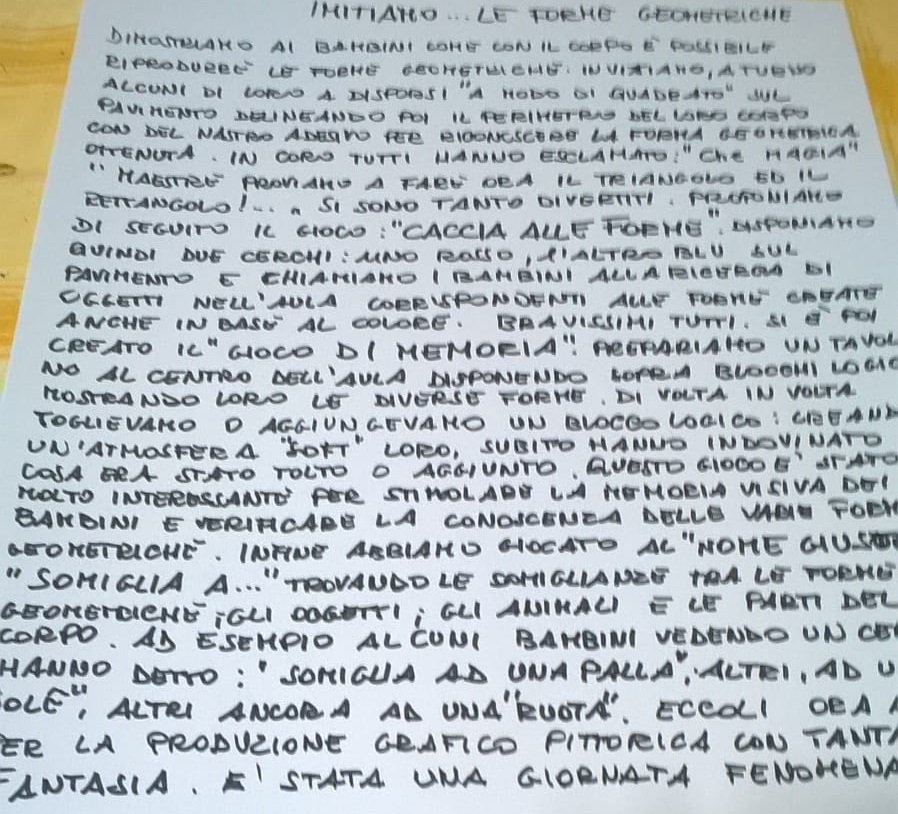 IMITIAMO... LE FORME GEOMETRICHE
DIMOSTRIAMO AI BAMBINI COME CON IL CORPO È POSSIBILE
RIPRODURRE LE FORME GEOMETRICHE. INVITIAMO, A TURNO
ALCUNI DI LORO A DISPORSI "A MODO DI QUADRATO" SUL
PAVIMENTO DELINEANDO POI IL PERIMETRO DEL LORO CORPO
CON DEL NASTRO ADESIVO PER RICONOSCERE LA FORMA GEOMETRICA
OTTENUTA. IN CORO TUTTI HANNO ESCLAMATO: "CHE MAGIA"
"MAESTRE PROVIAMO A FARE ORA IL TRIANGOLO ED IL
RETTANGOLO!... " SI SONO TANTO DIVERTITI. PROPONIAMO
DI SEGUITO IL GIOCO: "CACCIA ALLE FORME". DISPONIAMO
QUINDI DUE CERCHI: UNO ROSSO, L'ALTRO BLU SUL
PAVIMENTO E CHIAMIAMO I BAMBINI ALLA RICERCA DI
OGGETTI NELL'AULA CORRISPONDENTI ALLE FORME CREATE
ANCHE IN BASE AL COLORE. BRAVISSIMI TUTTI. SI È POI
CREATO IL "GIOCO DI MEMORIA". PREPARIAMO UN TAVOL
NO AL CENTRO DELL'AULA DISPONENDO SOPRA BLOCCHI LOGIC
MOSTRANDO LORO LE DIVERSE FORME. DI VOLTA IN VOLTA
TOGLIEVAMO O AGGIUNGEVAMO UN BLOCCO LOGICO: CREAND
UN'ATMOSFERA "SOFT" LORO, SUBITO HANNO INDOVINATO
COSA ERA STATO TOLTO O AGGIUNTO. QUESTO GIOCO E' STATO
MOLTO INTERESSANTE PER STIMOLARE LA MEMORIA VISIVA DEI
BAMBINI E VERIFICARE LA CONOSCENZA DELLE VARIE FORM
GEOMETRICHE. INFINE ABBIAMO GIOCATO AL "NOME GIUSTO
"SOMIGLIA A..." TROVANDO LE SOMIGLIANZE TRA LE FORME
GEOMETRICHE; GLI OGGETTI; GLI ANIMALI E LE PARTI DEL
CORPO. AD ESEMPIO ALCUNI BAMBINI VEDENDO UN CE
HANNO DETTO: "SOMIGLIA AD UNA PALLA", ALTRI, AD U
OLE", ALTRI ANCORA AD UNA "RUOTA". ECCOLI ORA A
ER LA PRODUZIONE GRAFICO PITTORICA CON TANTA
FANTASIA. E' STATA UNA GIORNATA FENOMENA